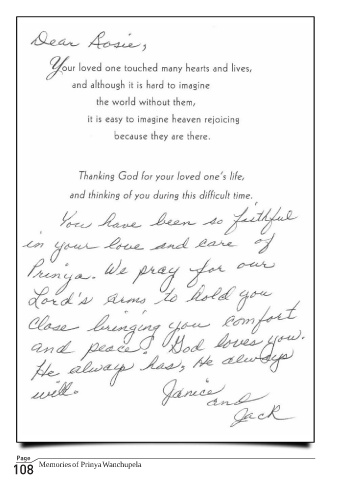 Dear Rosie,
Your loved one touched many hearts and lives,
and although it is hard to imagine
the world without them,
it is easy to imagine heaven rejoicing
because they are there.
Thanking God for your loved one's life,
and thinking of you during this difficult time.
You have been so faithful
in your love and care of
Prinya. We pray for our
Lord's arms to hold you
close bringing you comfort
and peace. God loves you.
He always has, He always
will.
Janice
and
Jack
Page
108
Memories of Prinya Wanchupela